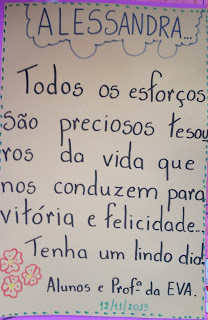 ALESSANDRA...
Todos os esforços
São preciosos tesou
ros da vida que
nos conduzem para
vitória e felicidade...
Tenha um lindo dia!
Alunos e Profª da EVA.
12/11/2013